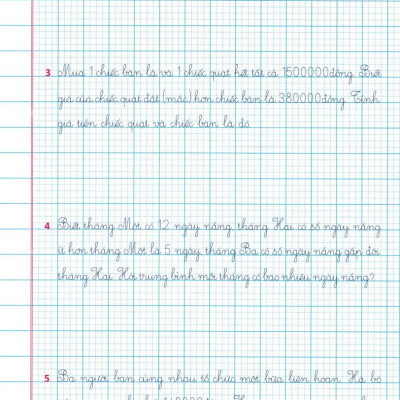 3 Mua 1 chiếc bàn là và 1 chiếc quạt hết tất cả 1500000 đồng. Biết
giá của chiếc quạt đắt (mắc) hơn chiếc bàn là 380000 đồng. Tính
giá tiền chiếc quạt và chiếc bàn là đó.
4 Biết tháng Một có 12 ngày nắng, tháng Hai có số ngày nắng
ít hơn tháng Một là 5 ngày, tháng Ba có số ngày nắng gấp đôi
tháng Hai. Hỏi trung bình mỗi tháng có bao nhiêu ngày nắng?
5 Ba người bạn cùng nhau tổ chức một bữa liên hoan. Hà bỏ